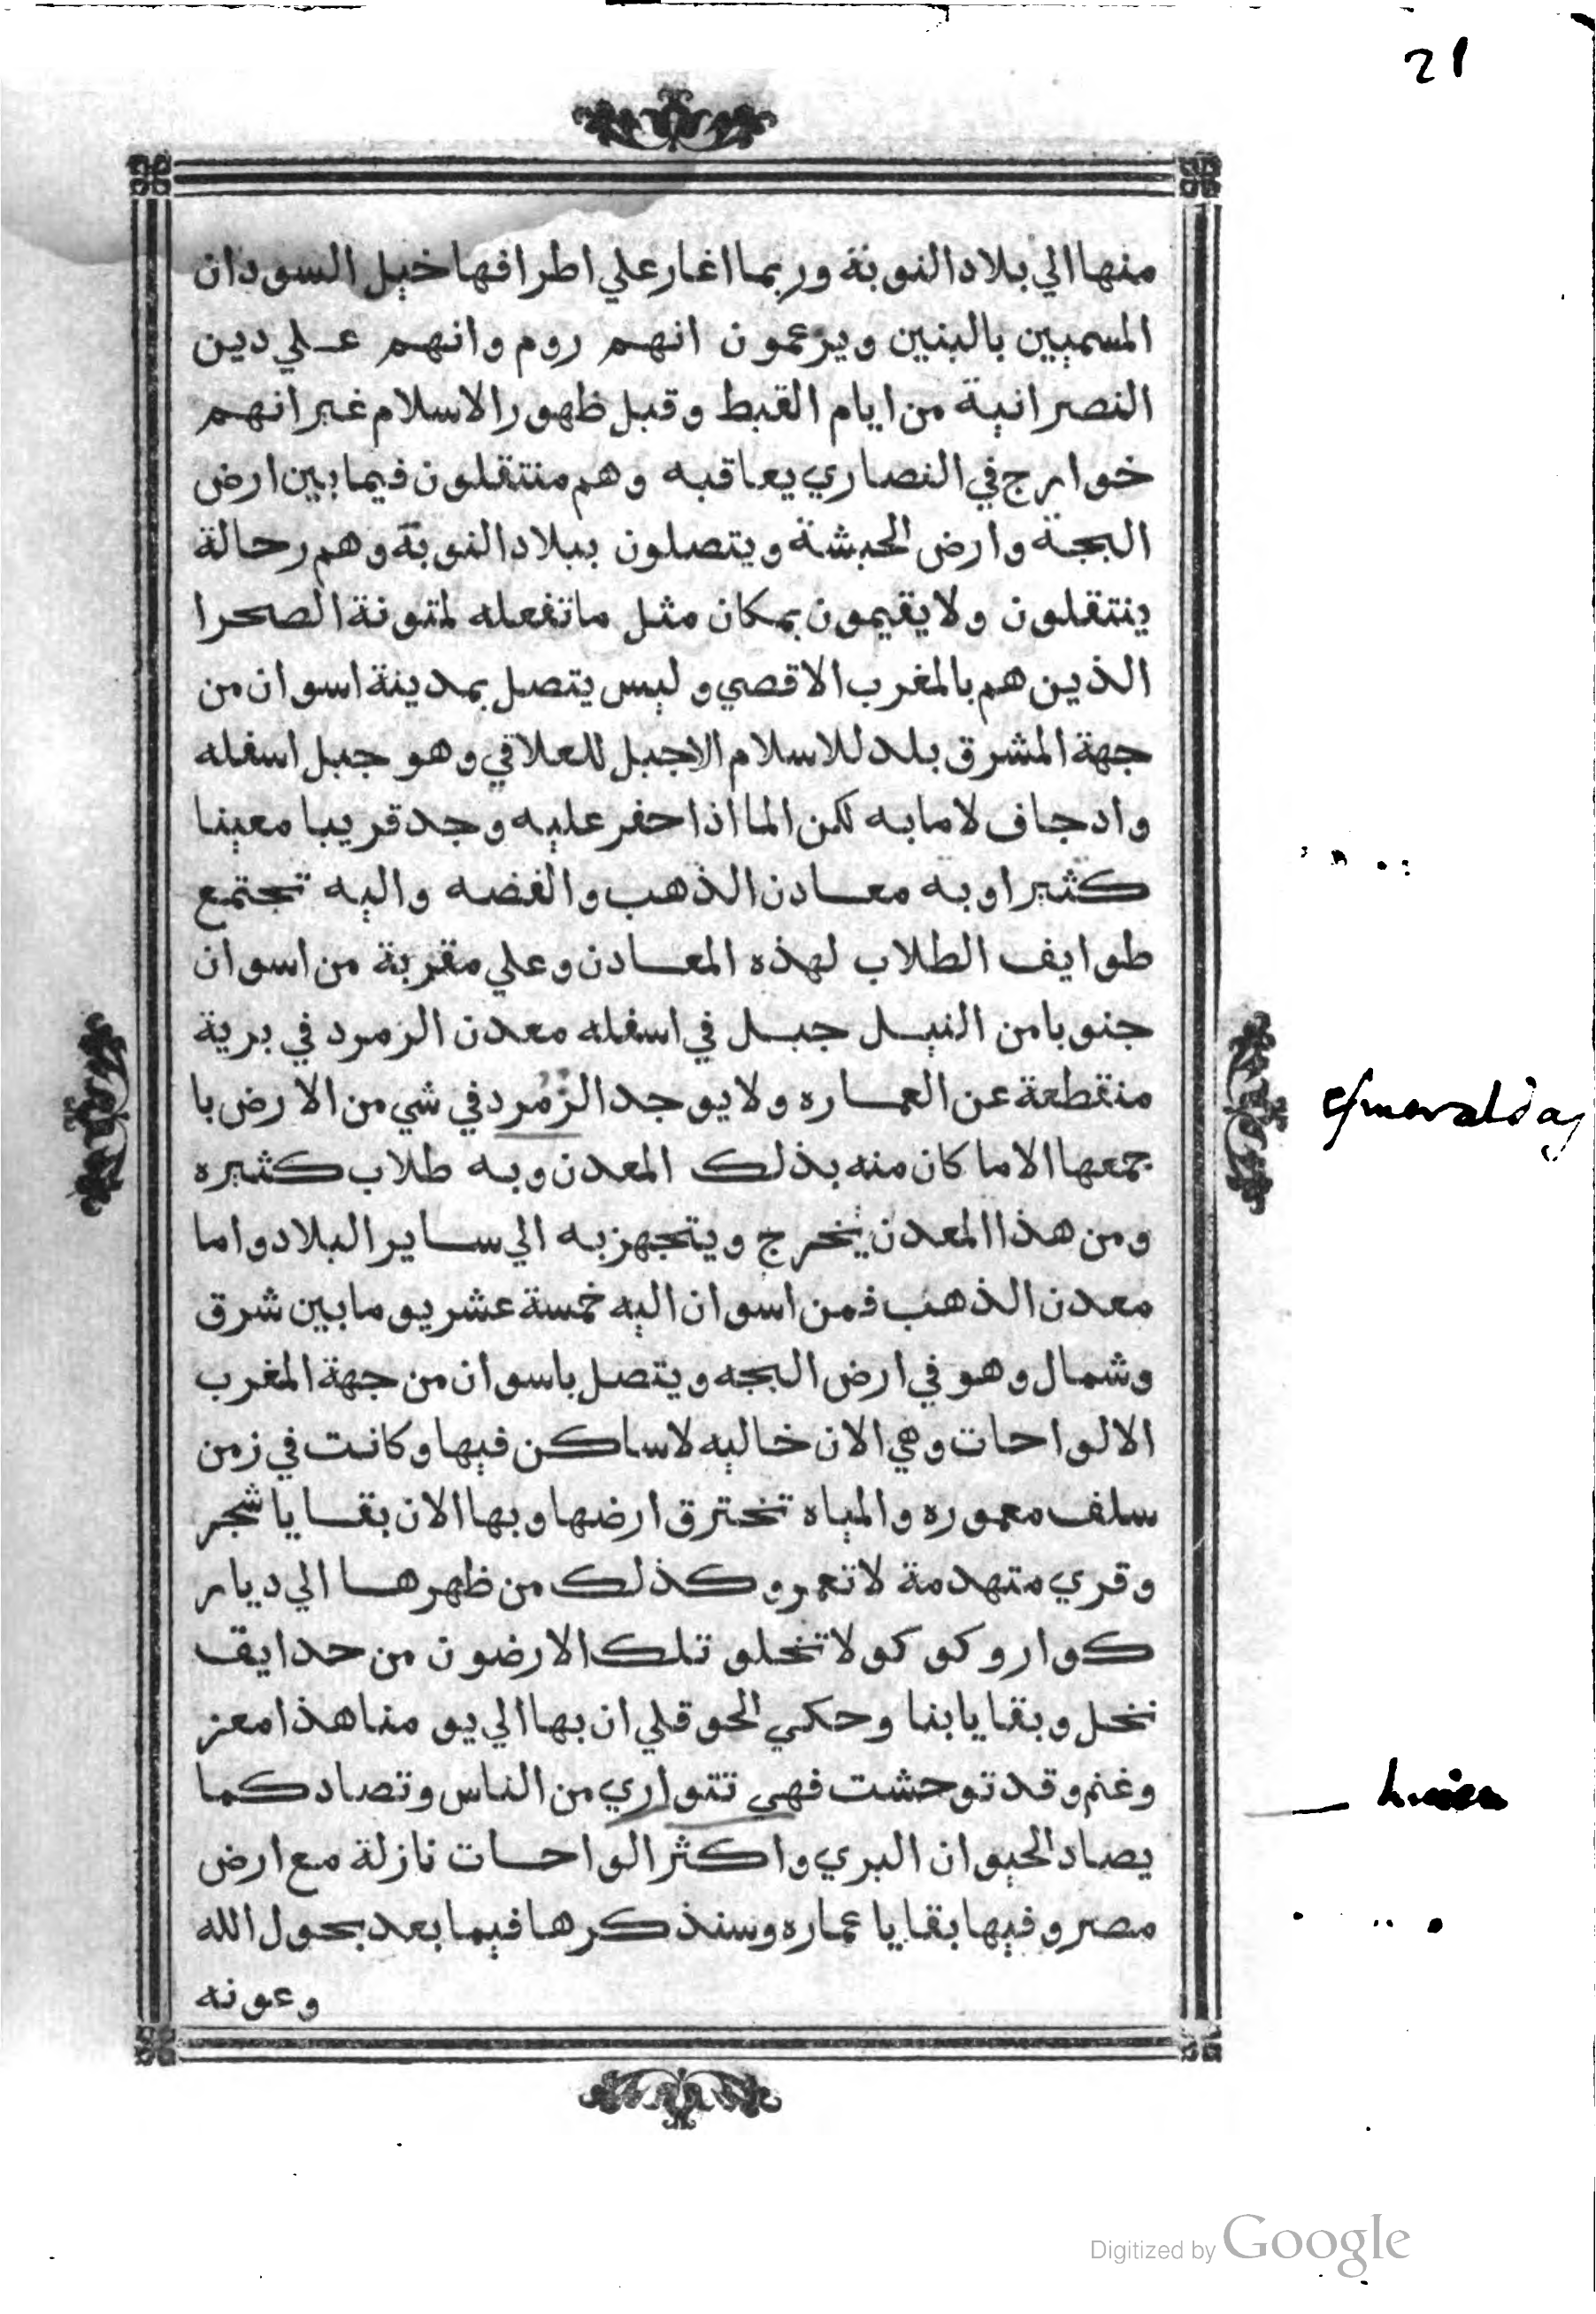 21
منها الي بلاد النوبة وربما اغار علي اطرافها خيل السودان
المسميين بالبنين ويزعمون انهم روم وانهم علي دين
النصرانية من ايام القبط وقبل ظهور الاسلام غير انهم
خوارج في النصاري يعاقبه وهم منتقلون فيما بين ارض
البجة وارض الحبشة ويتصلون ببلاد النوبة وهم رحالة
ينتقلون ولا يقيمون بمكان مثل ما تفعله لمتونة الصحرا
الذين هم بالمغرب الاقصي وليس يتصل بمدينة اسوان من
جهة المشرق بلد للاسلام الا جبل للعلاقي وهو جبل اسفله
واد جاف لا ما به لكن الما اذا حفر عليه وجد قريبا معينا
كثيرا وبه معادن الذهب والفضه واليه تجتمع
طوايف الطلاب لهذه المعادن وعلي مقربة من اسوان
جنوبا من النيل جبل في اسفله معدن الزمرد في برية
منقطعة عن العماره ولا يوجد الزمرد في شي من الارض با
جمعها الا ما كان منه بذلك المعدن وبه طلاب كثيره
ومن هذا المعدن يخرج ويتجهز به الي ساير البلاد واما
معدن الذهب فمن اسوان اليه خمسة عشر يوما بين شرق
وشمال وهو في ارض البجه ويتصل باسوان من جهة المغرب
الالواحات وهي الان خاليه لا ساكن فيها وكانت في زمن
سلف معموره والمياه تخترق ارضها وبها الان بقايا شجر
وقري متهدمة لا تعمر وكذلك من ظهرها الي ديار
كوار وكوكو لا تخلو تلك الارضون من حدايق
نخل وبقايا بنا وحكي الحوقلي ان بها الي يومنا هذا معز
وغنم وقد توحشت فهي تتواري من الناس وتصاد كما
يصاد الحيوان البري واكثر الواحات نازلة مع ارض
مصر وفيها بقايا عماره وسنذكرها فيما بعد بحول الله
وعونه
Esmeraldas
Digitized by Google